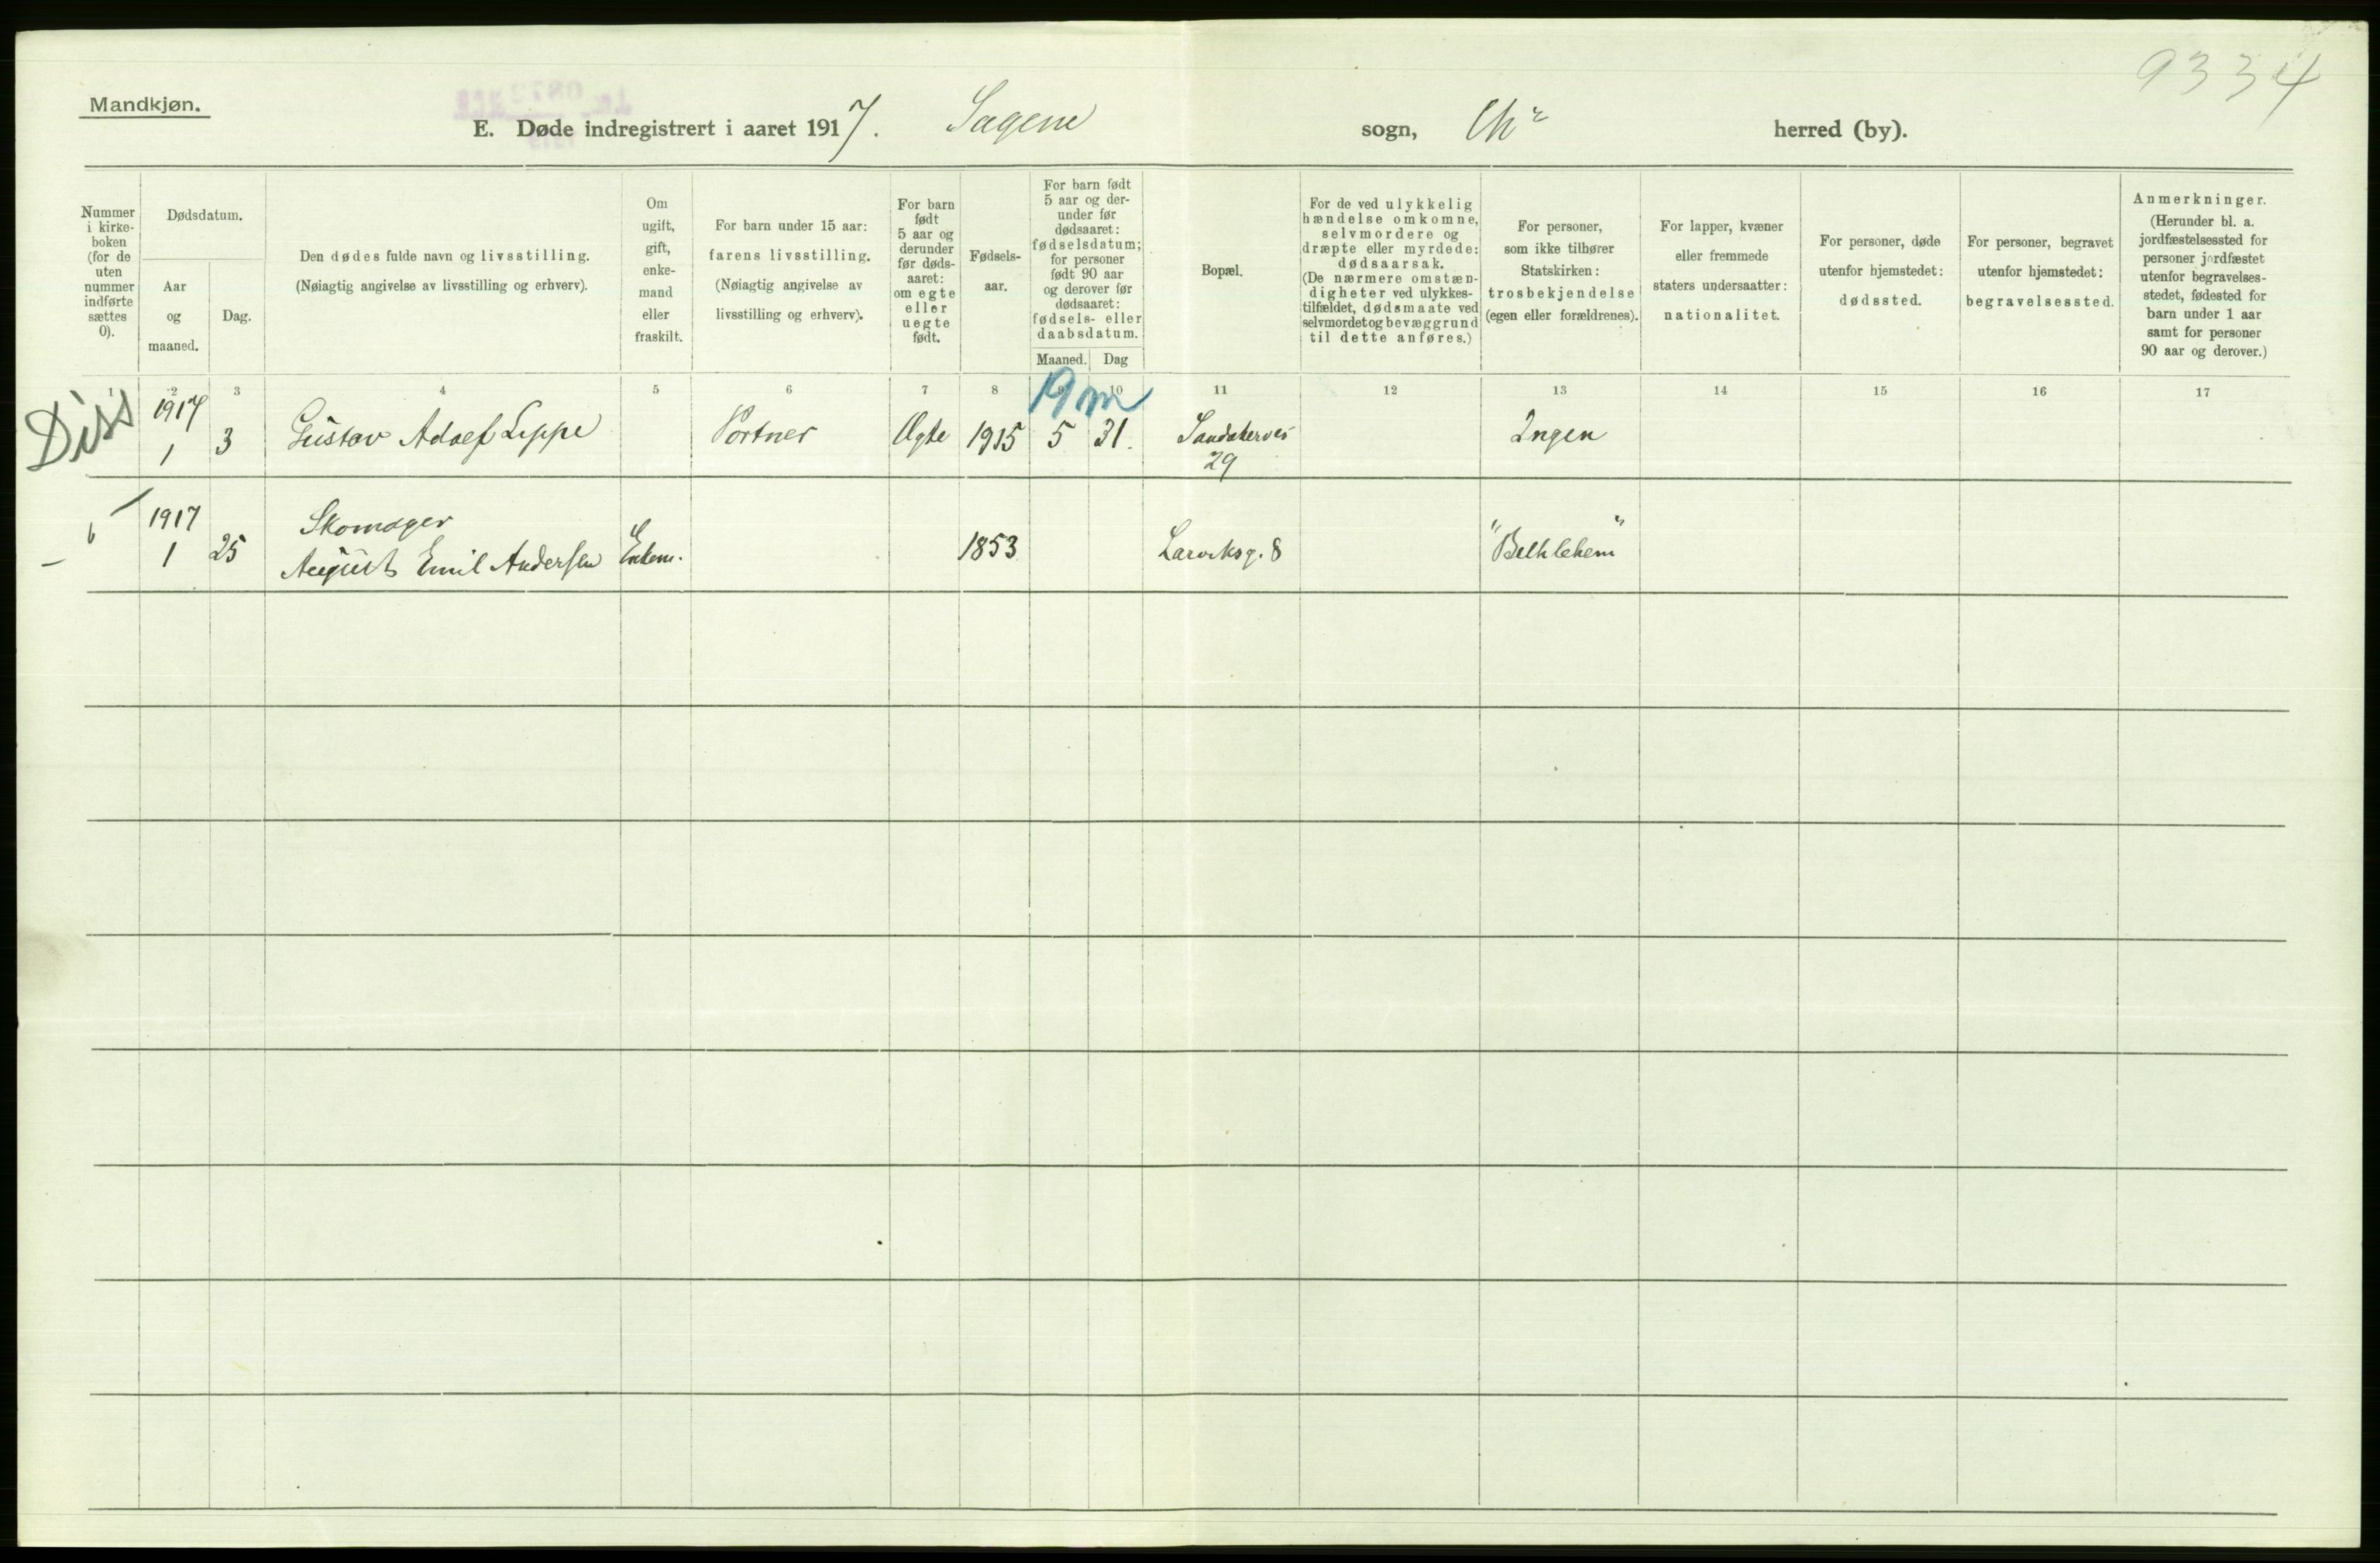 9334
Mandkjøn.
E. Døde indregistrert i aaret 1917. Sagene sogn, Chr herred (by).
Nummer
i kirke-
boken
(for de
uten
nummer
indførte
sættes
0).
Dødsdatum.
Aar
og
maaned.
Dag.
Den dødes fulde navn og livsstilling.
(Nøiagtig angivelse av livsstilling og erhverv).
Om
ugift,
gift,
enke-
mand
eller
fraskilt.
For barn under 15 aar:
farens livsstilling.
(Nøiagtig angivelse av
livsstilling og erhverv).
For barn
født
5 aar og
derunder
før døds-
aaret:
om egte
eller
uegte
født.
Fødsels-
aar.
For barn født
5 aar og der-
under før
dødsaaret:
fødselsdatum;
for personer
født 90 aar
og derover før
dødsaaret:
fødsels- eller
daabsdatum.
Maaned. Dag
Bopæl.
For de ved ulykkelig
hændelse omkomne,
selvmordere og
dræpte eller myrdede:
dødsaarsak.
(De nærmere omstæn-
digheter ved ulykkes-
tilfældet, dødsmaate ved
selvmordet og bevæggrund
til dette anføres.)
For personer,
som ikke tilhører
Statskirken:
trosbekjendelse
(egen eller forældrenes).
For lapper, kvæner
eller fremmede
staters undersaatter:
nationalitet.
For personer, døde
utenfor hjemstedet:
dødssted.
For personer, begravet
utenfor hjemstedet:
begravelsessted.
Anmerkninger.
(Herunder bl. a.
jordfæstelsessted for
personer jordfæstet
utenfor begravelses-
stedet, fødested for
barn under 1 aar
samt for personer
90 aar og derover.)
1 2 3 4 5 6 7 8 9 10 11 12 13 14 15 16 17
19 m
Diss 1917
1 3 Gustav Adolf Lippe Portner Ægte 1915 5 31. Sandakervei Ingen
29
1917 Skomager
1 25 August Emil Andersen Enkem. 1853 Larviksg. 8 "Bethlehem"